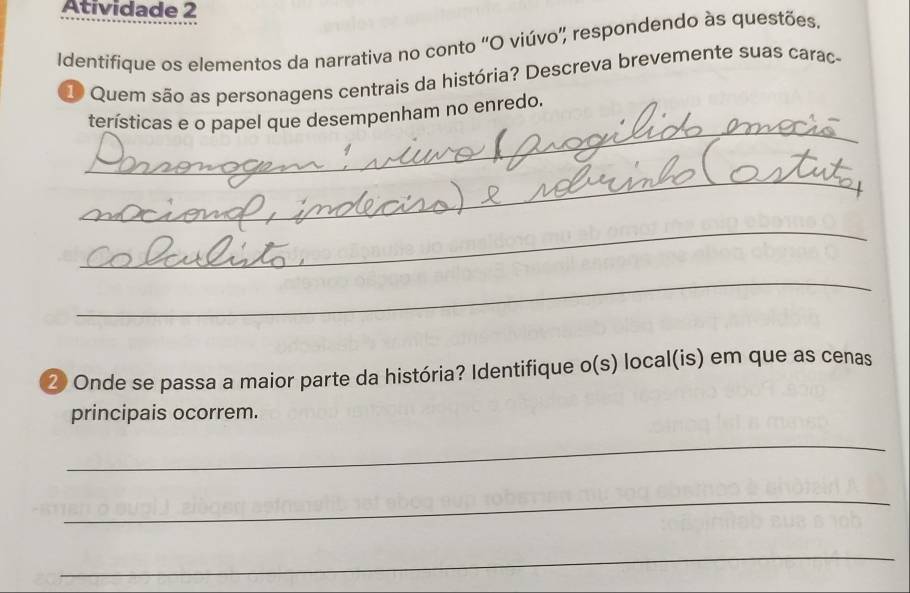 Atividade 2
Identifique os elementos da narrativa no conto "O viúvo", respondendo às questões.
1 Quem são as personagens centrais da história? Descreva brevemente suas carac-
terísticas e o papel que desempenham no enredo.
Personogem: viuvo (progilido emociō
nocional, indeciso) e sobrinho (astuto,
colculisto.
2 Onde se passa a maior parte da história? Identifique o(s) local(is) em que as cenas
principais ocorrem.